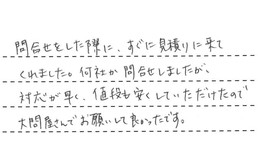 問合せをした際に、すぐに見積りに来て
くれました。何社か問合せしましたが、
対応が早く、値段も安くしていただけたので
大問屋さんでお願いして良かったです。